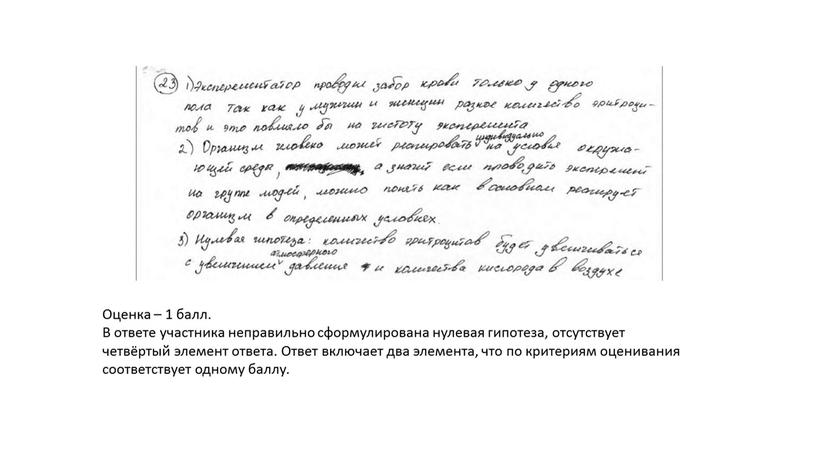 23 1) Эксперементатор проводил забор крови только у одного
пола так как у мужчин и женщин разное количество эритроци-
тов и это повлияло бы на чистоту эксперемента
2) Организм человека может реагировать индивидуально на условия окружа-
ющей среды, а значит если проводить эксперемент
на группе людей, можно понять как в основном реагирует
организм в определенных условиях.
3) Нулевая гипотеза: количество эритроцитов будет увеличиваться
с увеличением атмосферного давления и количества кислорода в воздухе
Оценка – 1 балл.
В ответе участника неправильно сформулирована нулевая гипотеза, отсутствует
четвёртый элемент ответа. Ответ включает два элемента, что по критериям оценивания
соответствует одному баллу.